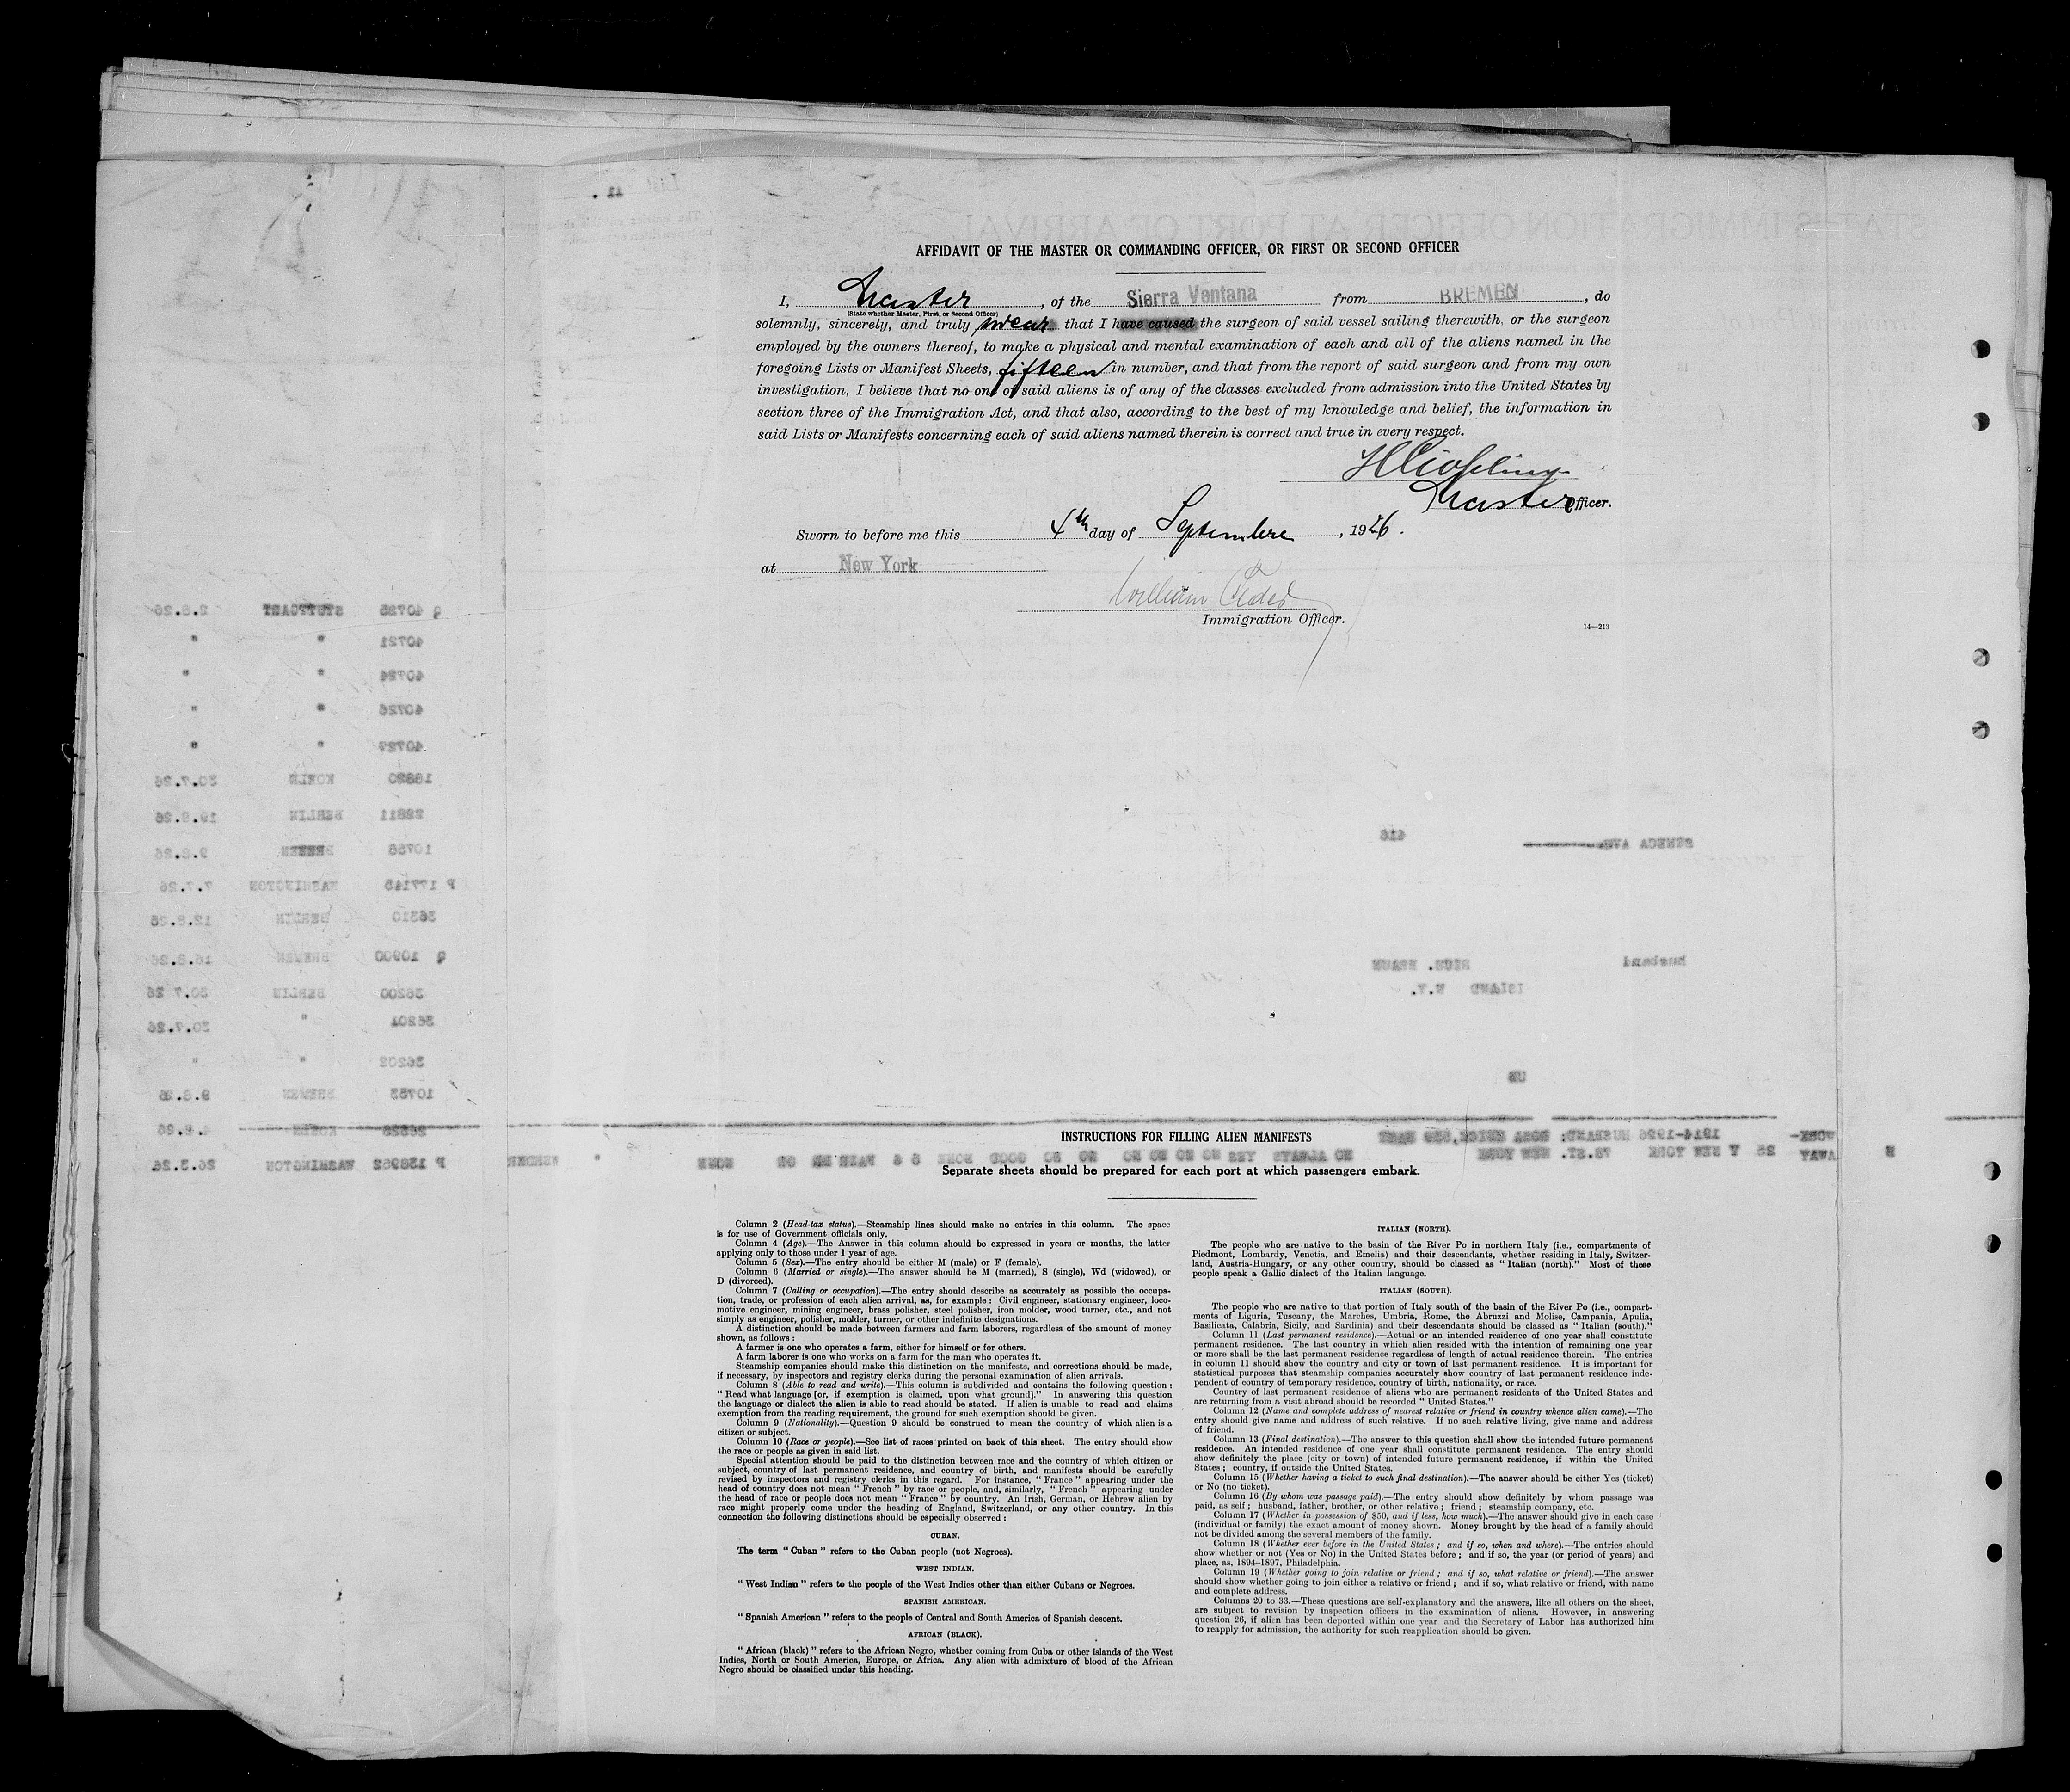 AFFIDAVIT OF THE MASTER OR COMMANDING OFFICER, OR FIRST OR SECOND OFFICER
I, Master, of the Sierra Ventana from BREMEN, do
(State whether Master, First, or Second Officer)
solemnly, sincerely, and truly swear that I have caused the surgeon of said vessel sailing therewith, or the surgeon
employed by the owners thereof, to make a physical and mental examination of each and all of the aliens named in the
foregoing Lists or Manifest Sheets, fifteen in number, and that from the report of said surgeon and from my own
investigation, I believe that no one of said aliens is of any of the classes excluded from admission into the United States by
section three of the Immigration Act, and that also, according to the best of my knowledge and belief, the information in
said Lists or Manifests concerning each of said aliens named therein is correct and true in every respect.
Master Officer.
Sworn to before me this 4th day of Septembre, 1926.
at New York
William
Immigration Officer.
14—213
Q 40725 STUTTGART 2.8.26
40721 " "
40724 " "
40726 " "
40727 " "
18820 KOELN 30.7.26
22811 BERLIN 19.8.26
10756 BREMEN 9.8.26
P 177145 WASHINGTON 7.7.26
36310 BERLIN 12.8.26
Q 10900 BREMEN 16.8.26
36200 BERLIN 30.7 26
36201 " 30.7.26
36202 " "
10753 BREMEN 9.8.26
P 138962 WASHINGTON 26.3.26.
SENECA AVE
416
husband
ISLAND N.Y.
US
INSTRUCTIONS FOR FILLING ALIEN MANIFESTS
Separate sheets should be prepared for each port at which passengers embark.
Column 2 (Head-tax status).—Steamship lines should make no entries in this column. The space
is for use of Government officials only.
Column 4 (Age).—The Answer in this column should be expressed in years or months, the latter
applying only to those under 1 year of age.
Column 5 (Sex).—The entry should be either M (male) or F (female).
Column 6 (Married or single).—The answer should be M (married), S (single), Wd (widowed), or
D (divorced).
Column 7 (Calling or occupation).—The entry should describe as accurately as possible the occupa-
tion, trade, or profession of each alien arrival, as, for example: Civil engineer, stationary engineer, loco-
motive engineer, mining engineer, brass polisher, steel polisher, iron molder, wood turner, etc., and not
simply as engineer, polisher, molder, turner, or other indefinite designations.
A distinction should be made between farmers and farm laborers, regardless of the amount of money
shown, as follows:
A farmer is one who operates a farm, either for himself or for others.
A farm laborer is one who works on a farm for the man who operates it.
Steamship companies should make this distinction on the manifests, and corrections should be made,
if necessary, by inspectors and registry clerks during the personal examination of alien arrivals.
Column 8 (Able to read and write).—This column is subdivided and contains the following question:
"Read what language [or, if exemption is claimed, upon what ground]." In answering this question
the language or dialect the alien is able to read should be stated. If alien is unable to read and claims
exemption from the reading requirement, the ground for such exemption should be given.
Column 9 (Nationality).—Question 9 should be construed to mean the country of which alien is a
citizen or subject.
Column 10 (Race or people).—See list of races printed on back of this sheet. The entry should show
the race or people as given in said list.
Special attention should be paid to the distinction between race and the country of which citizen or
subject, country of last permanent residence, and country of birth, and manifests should be carefully
revised by inspectors and registry clerks in this regard. For instance, "France" appearing under the
head of country does not mean "French" by race or people, and, similarly, "French" appearing under
the head of race or people does not mean "France" by country. An Irish, German, or Hebrew alien by
race might properly come under the heading of England, Switzerland, or any other country. In this
connection the following distinctions should be especially observed:
CUBAN.
The term "Cuban" refers to the Cuban people (not Negroes).
WEST INDIAN.
"West Indian" refers to the people of the West Indies other than either Cubans or Negroes.
SPANISH AMERICAN.
"Spanish American" refers to the people of Central and South America of Spanish descent.
AFRICAN (BLACK).
"African (black)" refers to the African Negro, whether coming from Cuba or other islands of the West
Indies, North or South America, Europe, or Africa. Any alien with admixture of blood of the African
Negro should be classified under this heading.
ITALIAN (NORTH).
The people who are native to the basin of the River Po in northern Italy (i.e., compartments of
Piedmont, Lombardy, Venetia, and Emelia) and their descendants, whether residing in Italy, Switzer-
land, Austria-Hungary, or any other country, should be classed as "Italian (north)." Most of these
people speak a Gallic dialect of the Italian language.
ITALIAN (SOUTH).
The people who are native to that portion of Italy south of the basin of the River Po (i.e., compart-
ments of Liguria, Tuscany, the Marches, Umbria, Rome, the Abruzzi and Molise, Campania, Apulia,
Basilicata, Calabria, Sicily, and Sardinia) and their descendants should be classed as "Italian (south)."
Column 11 (Last permanent residence).—Actual or an intended residence of one year shall constitute
permanent residence. The last country in which alien resided with the intention of remaining one year
or more shall be the last permanent residence regardless of length of actual residence therein. The entries
in column 11 should show the country and city or town of last permanent residence. It is important for
statistical purposes that steamship companies accurately show country of last permanent residence inde-
pendent of country of temporary residence, country of birth, nationality, or race.
Country of last permanent residence of aliens who are permanent residents of the United States and
are returning from a visit abroad should be recorded "United States."
Column 12 (Name and complete address of nearest relative or friend in country whence alien came).—The
entry should give name and address of such relative. If no such relative living, give name and address
of friend.
Column 13 (Final destination).—The answer to this question shall show the intended future permanent
residence. An intended residence of one year shall constitute permanent residence. The entry should
show definitely the place (city or town) of intended future permanent residence, if within the United
States; country, if outside the United States.
Column 15 (Whether having a ticket to such final destination).—The answer should be either Yes (ticket)
or No (no ticket).
Column 16 (By whom was passage paid).—The entry should show definitely by whom passage was
paid, as self; husband, father, brother, or other relative; friend; steamship company, etc.
Column 17 (Whether in possession of $50, and if less, how much).—The answer should give in each case
(individual or family) the exact amount of money shown. Money brought by the head of a family should
not be divided among the several members of the family.
Column 18 (Whether ever before in the United States; and if so, when and where).—The entries should
show whether or not (Yes or No) in the United States before; and if so, the year (or period of years) and
place, as, 1894-1897, Philadelphia.
Column 19 (Whether going to join relative or friend; and if so, what relative or friend).—The answer
should show whether going to join either a relative or friend; and if so, what relative or friend, with name
and complete address.
Columns 20 to 33.—These questions are self-explanatory and the answers, like all others on the sheet,
are subject to revision by inspection officers in the examination of aliens. However, in answering
question 26, if alien has been deported within one year and the Secretary of Labor has authorized him
to reapply for admission, the authority for such reapplication should be given.